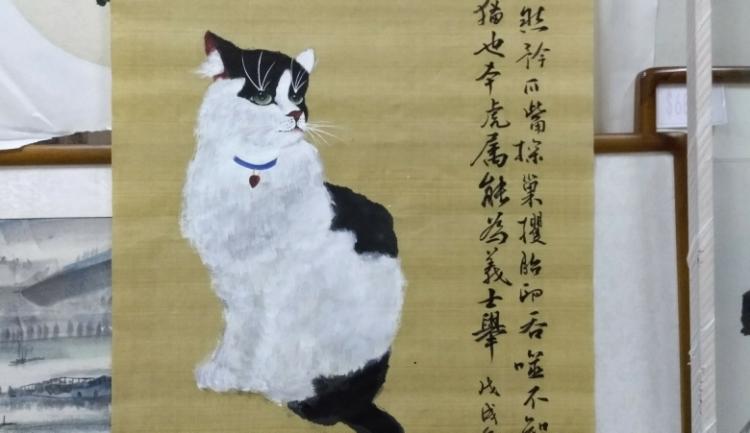 然矜爪觜探巢攫胎卵吞噬不知
猫也本虎属能為義士舉
戊戌